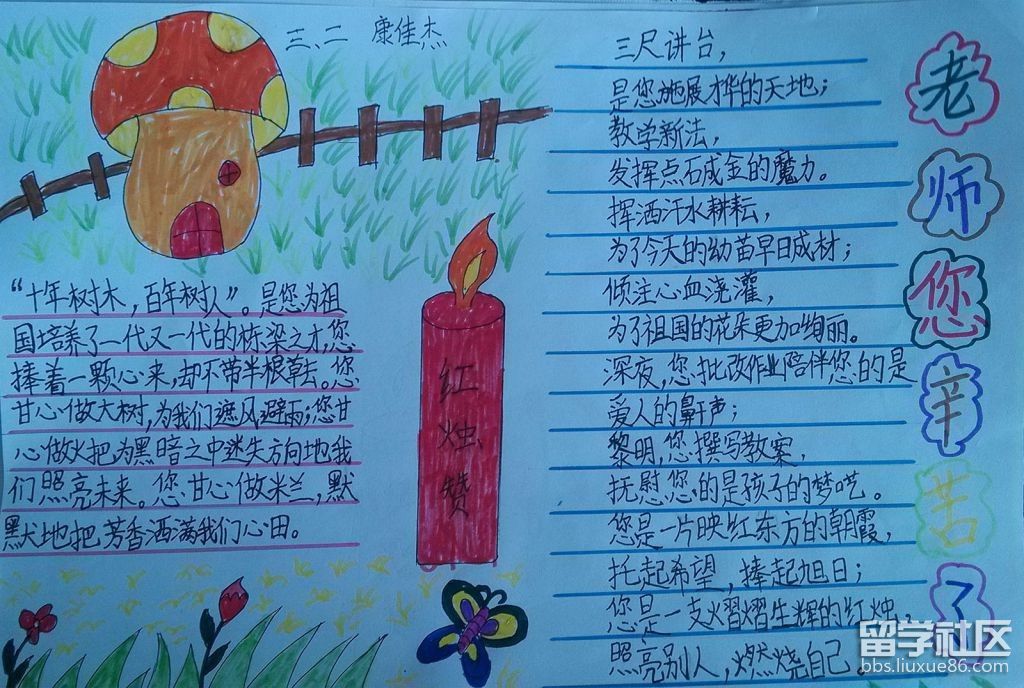 三、二 康佳杰
“十年树木，百年树人”。是您为祖
国培养了一代又一代的栋梁之才,您
捧着一颗心来,却不带半根草去。您
甘心做大树,为我们遮风避雨;您甘
心做火把为黑暗之中迷失方向地我
们照亮未来。您甘心做米兰,默
默地把芳香洒满我们心田。
红烛赞
三尺讲台，
是您施展才华的天地；
教学新法，
发挥点石成金的魔力。
挥洒汗水耕耘，
为了今天的幼苗早日成材；
倾注心血浇灌，
为了祖国的花朵更加绚丽。
深夜,您批改作业陪伴您的是
爱人的鼾声；
黎明,您撰写教案,
抚慰您的是孩子的梦呓。
您是一片映红东方的朝霞,
托起希望,捧起旭日；
您是一支熠熠生辉的红烛,
照亮别人,燃烧自己。
老师您辛苦了
留学社区
bbs.liuxue86.com